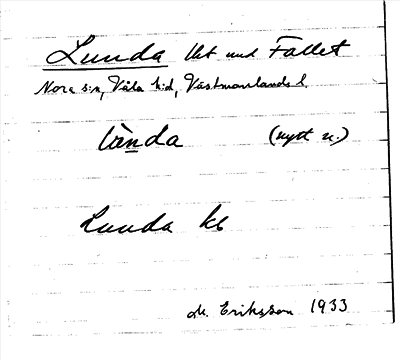 Lunda lht und Fallet
Nora s:n, Våla h:d, Västmanlands l.
lànda (nytt n.)
Lunda kb
M. Eriksson 1933